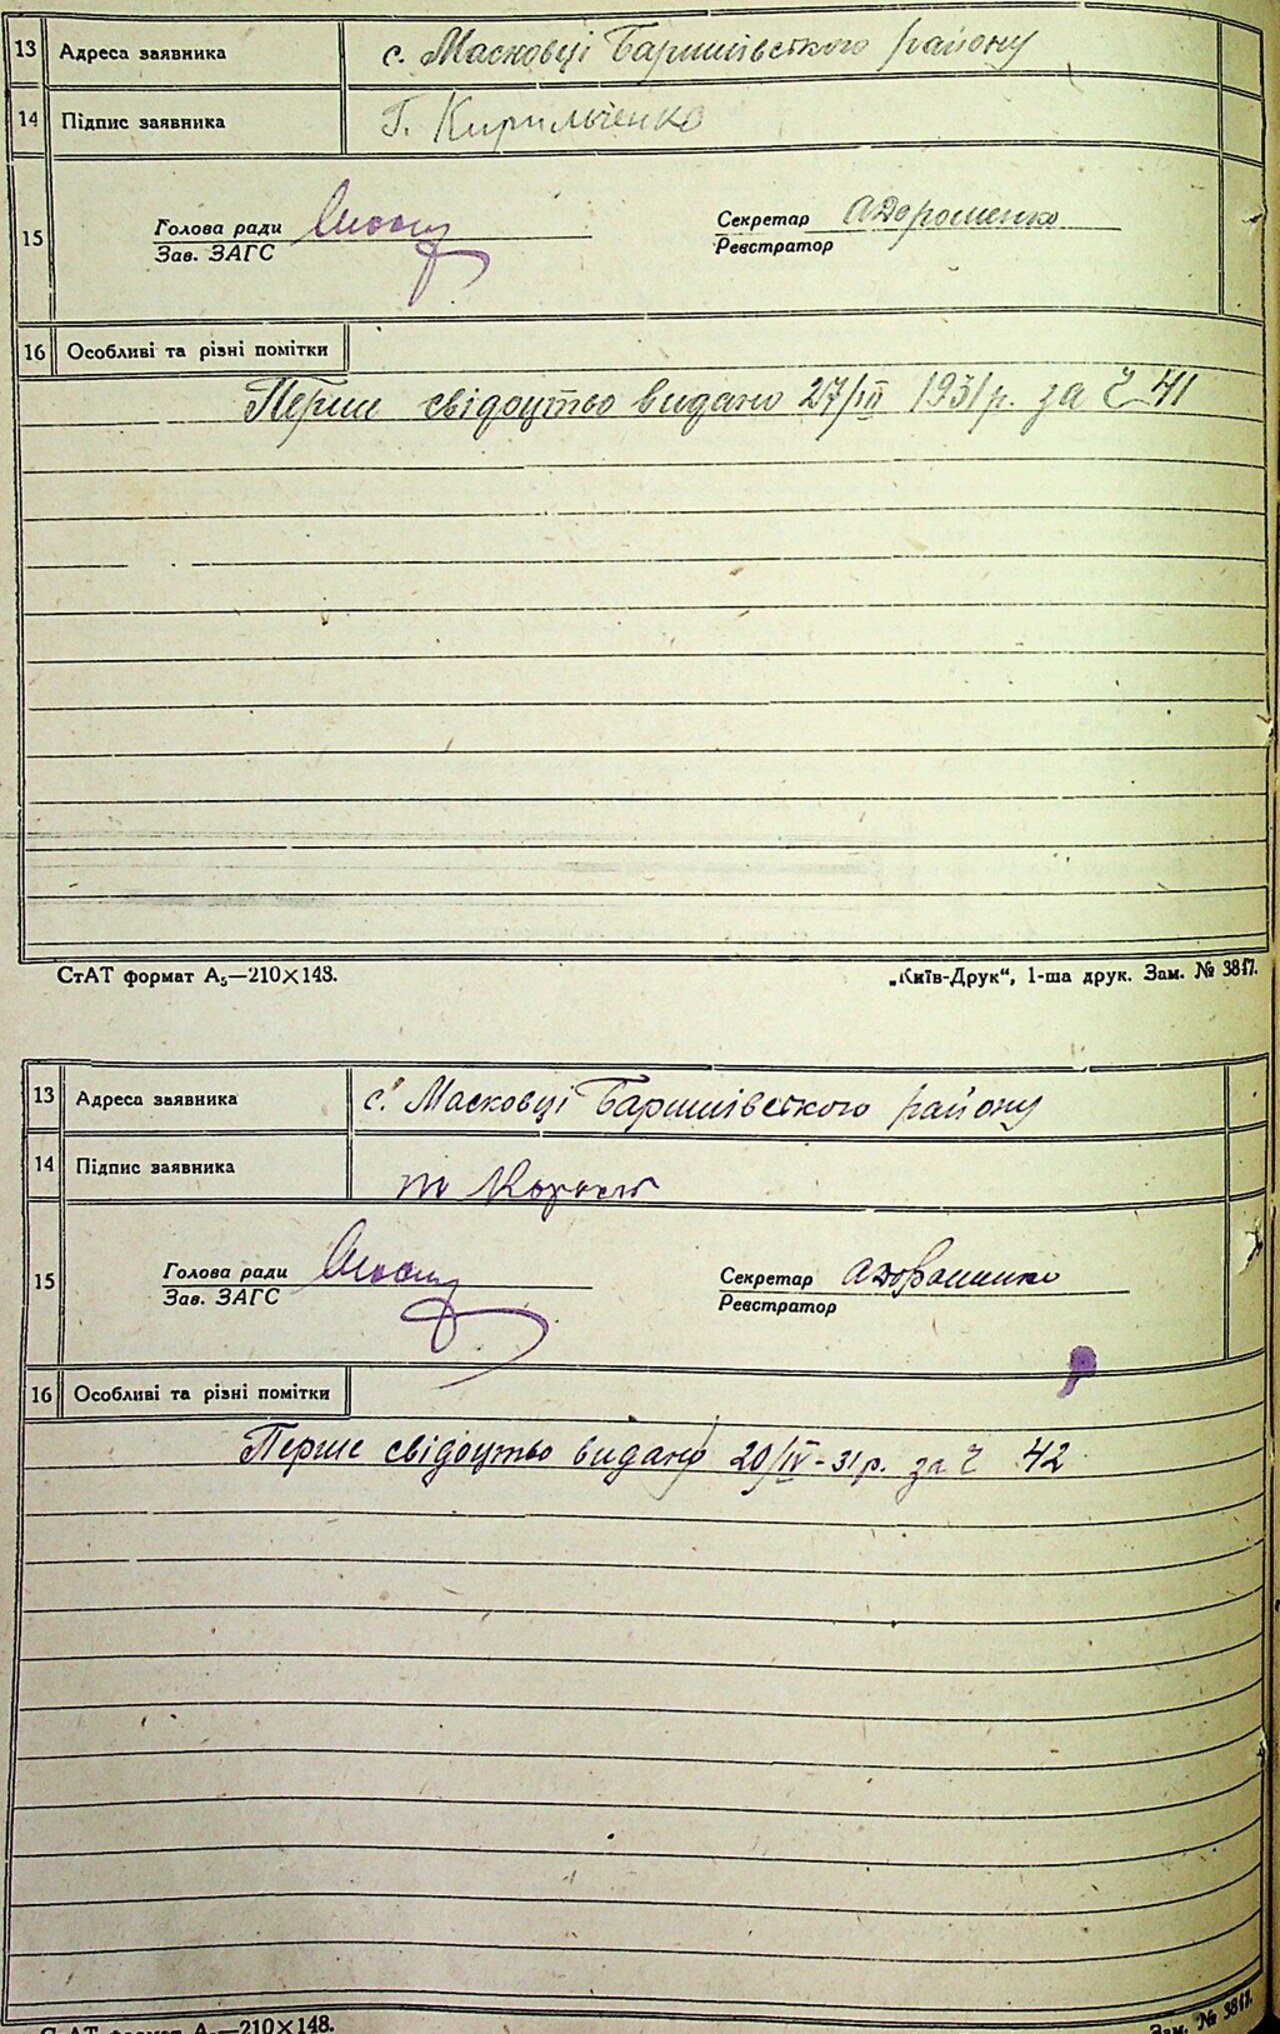 13 Адреса заявника с. Масковці Баришівського району
14 Підпис заявника Г. Кирильченко
15 Голова ради Секретар АДорошенко
Зав. ЗАГС Реєстратор
16 Особливі та різні помітки
Перше свідоцтво видано 27/III 1931 р. за № 41
СтАТ формат А₅—210×148. „Київ-Друк“, 1-ша друк. Зам. № 3817.
13 Адреса заявника с. Масковці Баришівського району
14 Підпис заявника
15 Голова ради Секретар АДорошенко
Зав. ЗАГС Реєстратор
16 Особливі та різні помітки
Перше свідоцтво видано 20/IV-31 р. за № 42
СтАТ формат А₅—210×148. Зам. № 3817.